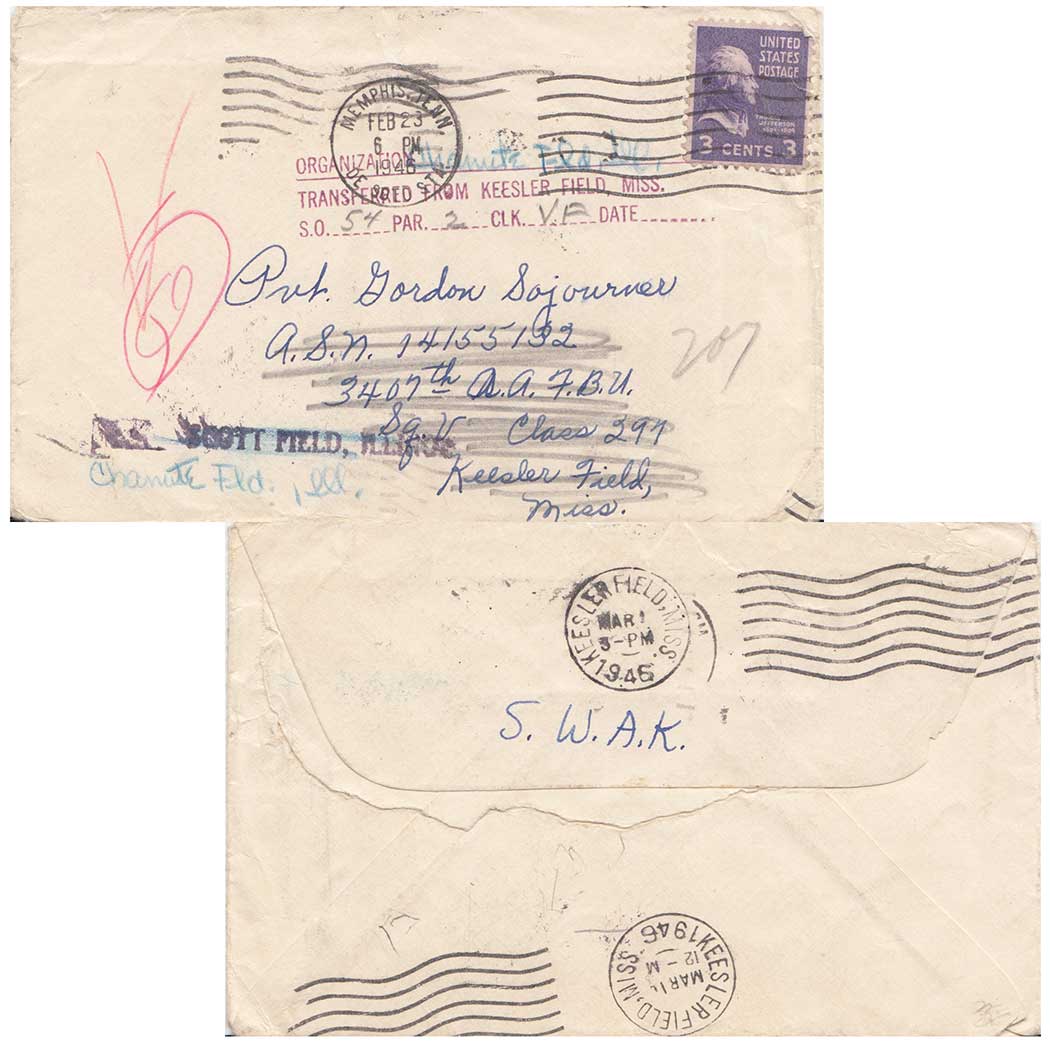 UNITED
STATES
POSTAGE
3 CENTS 3
MEMPHIS, TENN
FEB 23
6 PM
1946
ORGANIZATION Chanute Fld., Ill.
TRANSFERRED FROM KEESLER FIELD, MISS.
S.O. 54 PAR. 2 CLK. VF DATE
Pvt. Gordon Sojourner
A.S.N. 14155132
3407th A.A.F.B.U.
Sq. V Class 297
Keesler Field,
Miss.
207
SCOTT FIELD, ILLINOIS
Chanute Fld., Ill.
KEESLER FIELD, MISS.
MAR 1
3-PM
1946
S. W. A. K.
KEESLER FIELD, MISS.
MAR
12 - M
1946